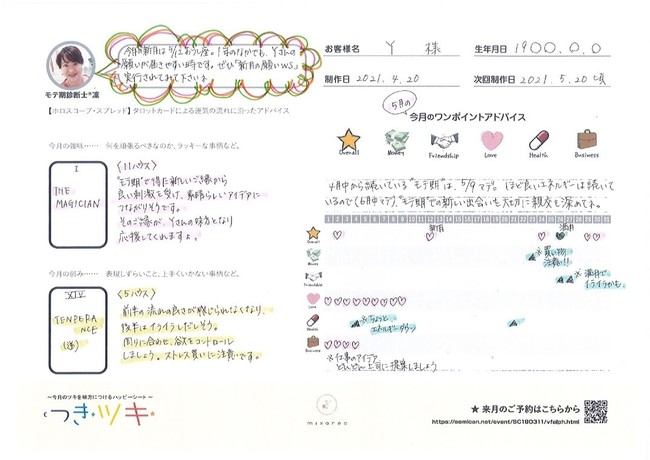 今月の新月は5/12おうし座。1年のなかでも、Yさんの
願いが届きやすい時です。ぜひ「新月の願いWS」
実行されてみて下さいね
モテ期診断士®凜
お客様名 Y 様 生年月日 1900.0.0
制作日 2021.4.20 次回制作日 2021.5.20 頃
【ホロスコープ・スプレッド】タロットカードによる運気の流れに沿ったアドバイス
5月の
今月のワンポイントアドバイス
Overall Money Friendship Love Health Business
今月の強味…… 何を頑張るべきなのか、ラッキーな事柄など。
I
THE
MAGICIAN
〈11ハウス〉
"モテ期"で得た新しいご縁から
良い刺激を受け、素晴らしいアイデアに
つながりそうです。
そのご縁が、Yさんの味方となり
応援してくれますよ。
4月中から続いている"モテ期"は、5/9マデ。ほど良いエネルギーは続いて
いるので(6月中マデ)"モテ期"での新しい出会いも大切に親交を深めてネ。
新月
満月
Overall
※買い物
注意!!
Money
※満月で
イライラかも。
Friendship
Love
※ちょっと
エネルギーダウン
Health
Business
※仕事のアイデア
どんどん上司に提案しましょう
今月の弱み…… 表現しずらいこと、上手くいかない事柄など。
XIV
TENPERA
NCE
(逆)
〈5ハウス〉
前半の流れの良さが感じられなくなり、
後半はイライラしだしそう。
周りに合わせ、欲をコントロール
しましょう。ストレス買いに注意です。
～今月のツキを味方につけるハッピーシート～
つき・ツキ
mixareo
★ 来月のご予約はこちらから